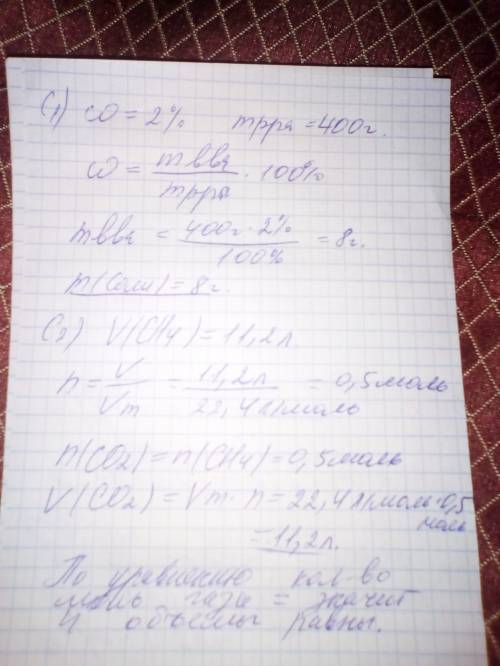 C1) ω = 2% mрра = 400г.
ω = mвва / mрра · 100%
mвва = 400г · 2% / 100% = 8г.
m(соли) = 8г.
C2) V(CH4) = 11,2л.
n = V / Vm = 11,2л / 22,4л/моль = 0,5моль
n(CO2) = n(CH4) = 0,5моль
V(CO2) = Vm · n = 22,4л/моль · 0,5
моль
= 11,2л.
По уравнению кол-во
моль газы = значит
и объемы равны.